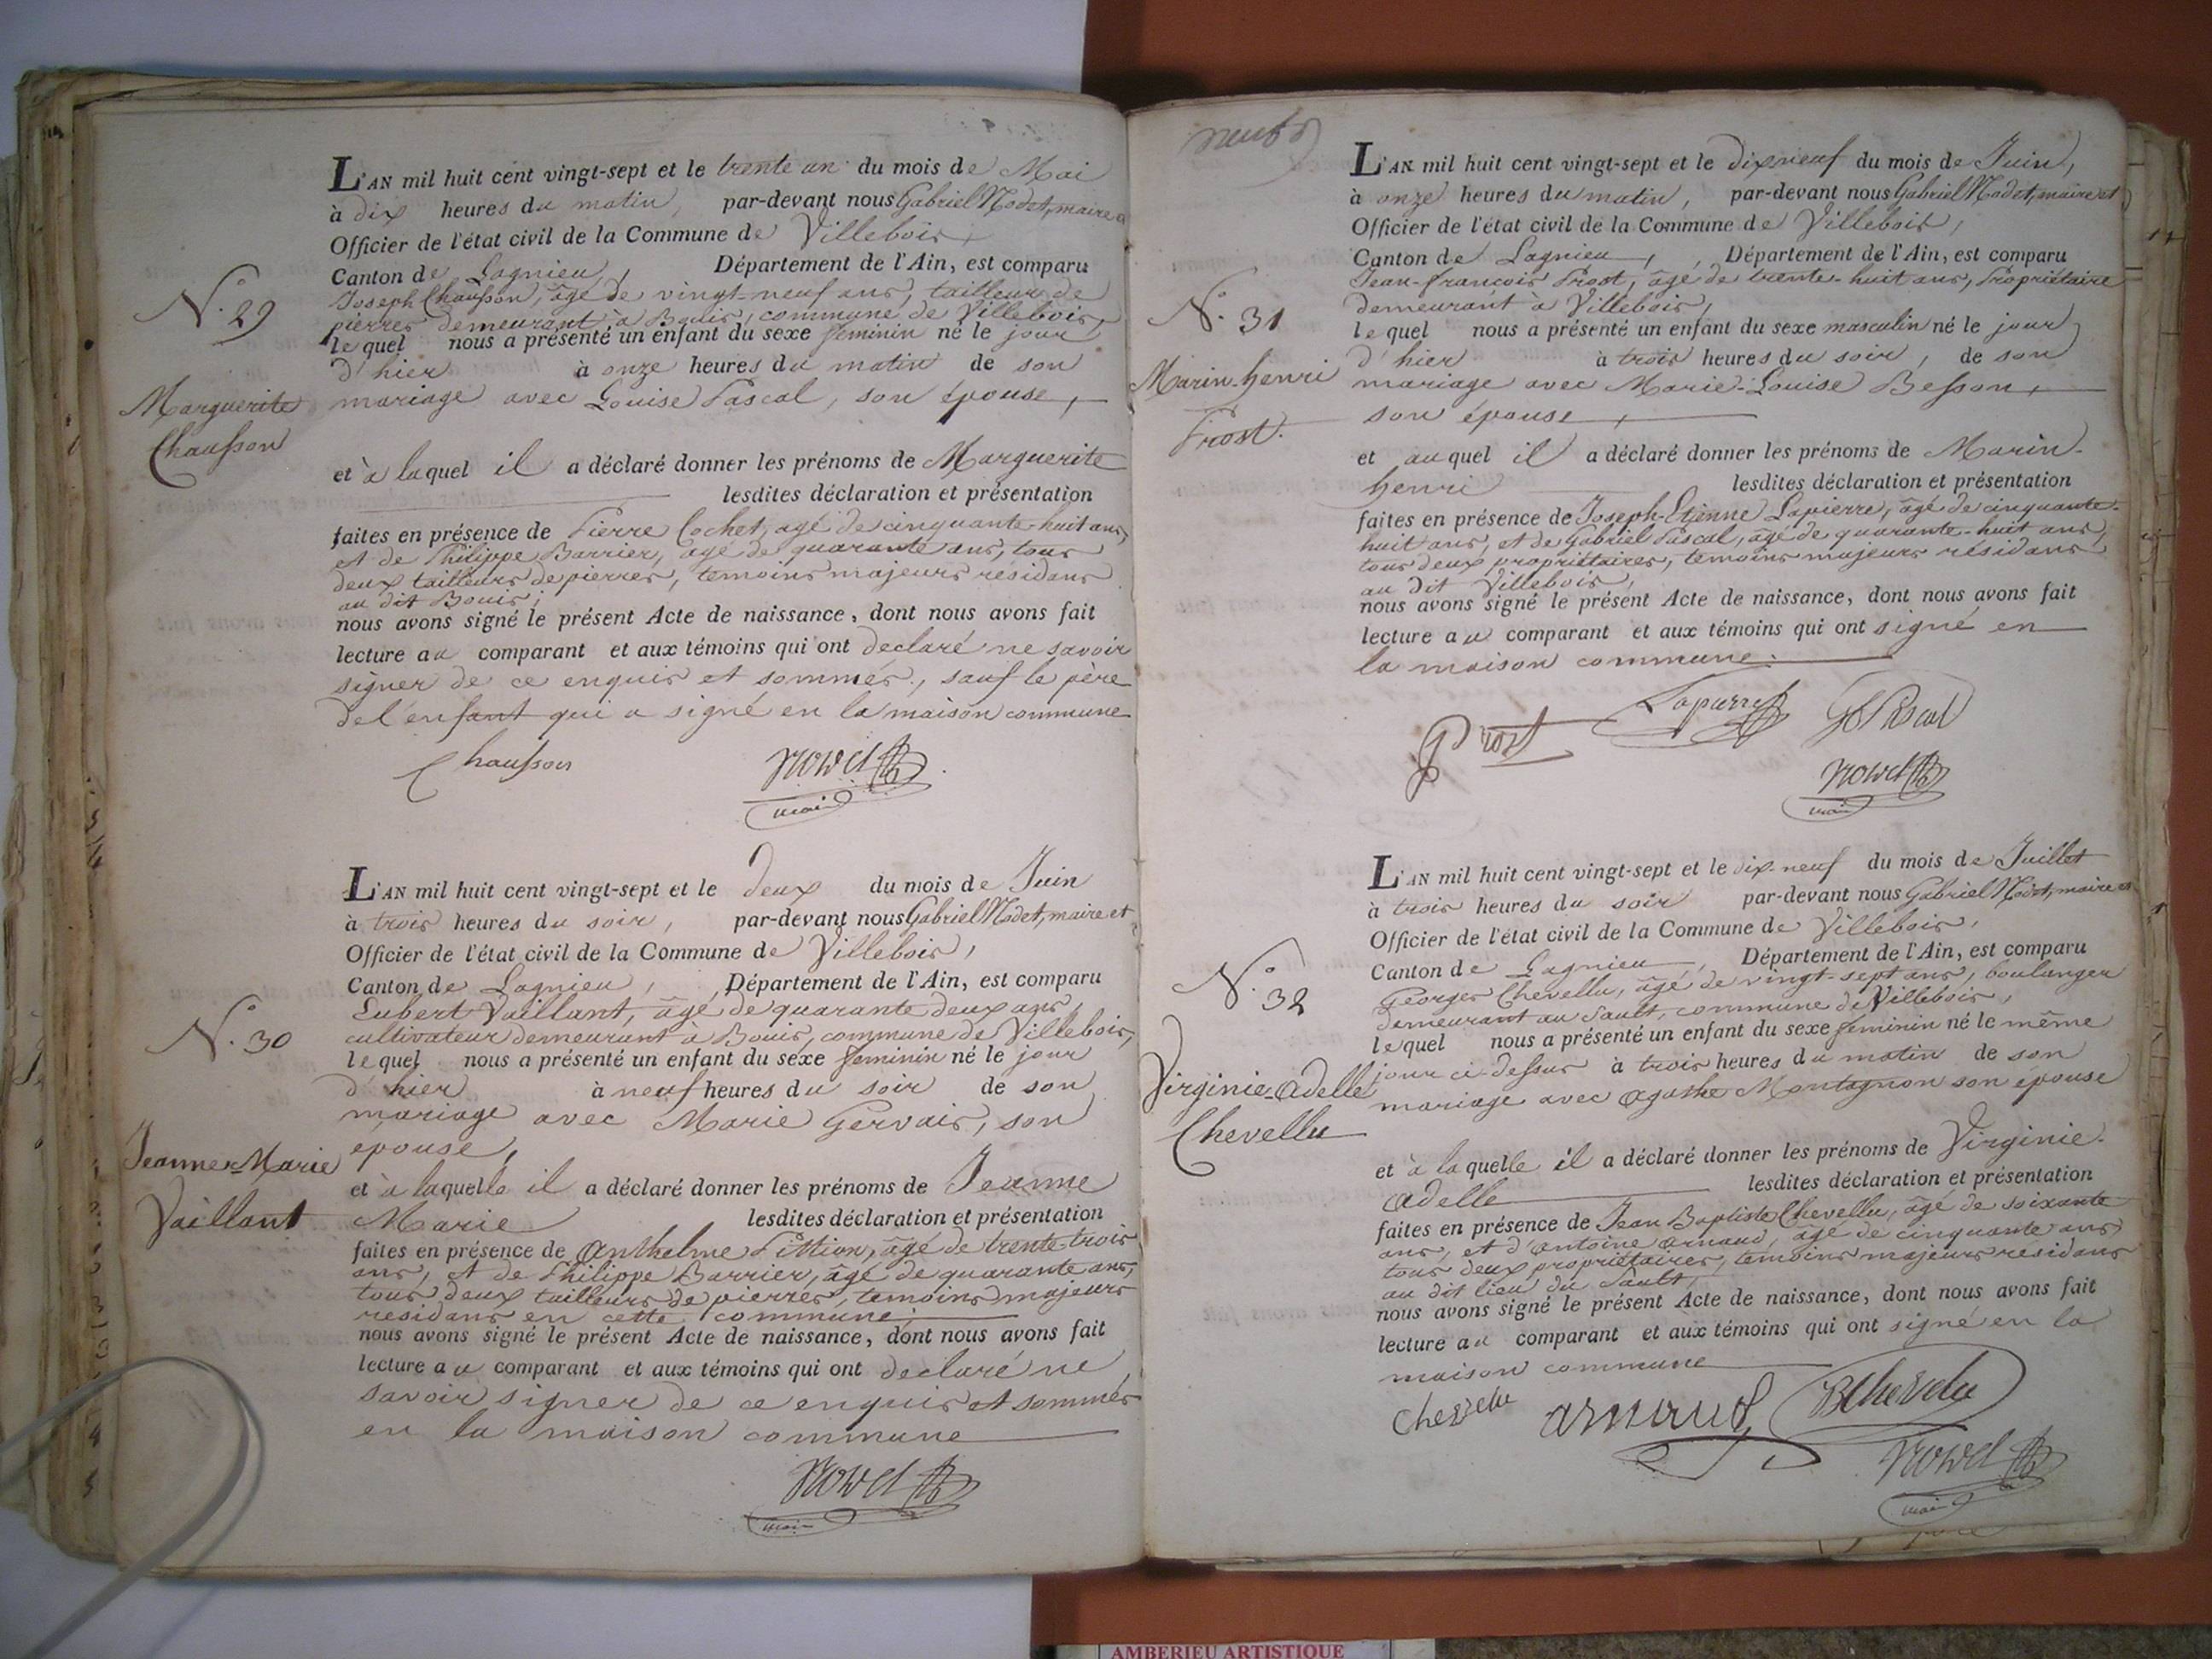 L'AN mil huit cent vingt-sept et le trente un du mois de Mai
à dix heures du matin, par-devant nous Gabriel Nodet, maire et
Officier de l'état civil de la Commune de Villebois,
Canton de Lagnieu, Département de l'Ain, est comparu
Joseph Chausson, âgé de vingt-neuf ans, tailleur de
pierres demeurant à Bouis, commune de Villebois,
lequel nous a présenté un enfant du sexe feminin né le jour
d'hier à onze heures du matin de son
mariage avec Louise Pascal, son épouse,
et à laquel il a déclaré donner les prénoms de Marguerite
lesdites déclaration et présentation
faites en présence de Pierre Cochet, agé de cinquante-huit ans,
et de Philippe Barrier, âgé de quarante ans, tous
deux tailleurs de pierres, temoins majeurs résidans
au dit Bouis;
nous avons signé le présent Acte de naissance, dont nous avons fait
lecture au comparant et aux témoins qui ont declaré ne savoir
signer de ce enquis et sommés, sauf le père
de l'enfant qui a signé en la maison commune
N.° 29
Marguerite
Chausson
Chausson
maire
L'AN mil huit cent vingt-sept et le deux du mois de Juin
à trois heures du soir, par-devant nous Gabriel Nodet, maire et
Officier de l'état civil de la Commune de Villebois,
Canton de Lagnieu, Département de l'Ain, est comparu
Lubert Vaillant, âgé de quarante deux ans,
cultivateur demeurant à Bouis, commune de Villebois,
lequel nous a présenté un enfant du sexe feminin né le jour
d'hier à neuf heures du soir de son
mariage avec Marie Gervais, son
epouse,
et à laquelle il a déclaré donner les prénoms de Jeanne
Marie lesdites déclaration et présentation
faites en présence de Anthelme Fittion, âgé de trente trois
ans, et de Philippe Barrier, âgé de quarante ans,
tous deux tailleurs de pierres, temoins majeurs
residans en cette commune;
nous avons signé le présent Acte de naissance, dont nous avons fait
lecture au comparant et aux témoins qui ont declaré ne
savoir signer de ce enquis et sommés
en la maison commune
N.° 30
Jeanne-Marie
Vaillant
maire
L'AN mil huit cent vingt-sept et le dix neuf du mois de Juin,
à onze heures du matin, par-devant nous Gabriel Nodet, maire et
Officier de l'état civil de la Commune de Villebois,
Canton de Lagnieu, Département de l'Ain, est comparu
Jean-françois Prost, âgé de trente-huit ans, Propriétaire
demeurant à Villebois,
lequel nous a présenté un enfant du sexe masculin né le jour
d'hier à trois heures du soir, de son
mariage avec Marie-Louise Besson,
son épouse,
et auquel il a déclaré donner les prénoms de Marin-
henri lesdites déclaration et présentation
faites en présence de Joseph-Etienne Lapierre, âgé de cinquante-
huit ans, et de Gabriel Pascal, agé de quarante-huit ans,
tous deux propriétaires, temoins majeurs résidans
au dit Villebois,
nous avons signé le présent Acte de naissance, dont nous avons fait
lecture au comparant et aux témoins qui ont signé en
la maison commune.
N.° 31
Marin-henri
Prost.
Prost
Lapierre
Pascal
maire
L'AN mil huit cent vingt-sept et le dix-neuf du mois de Juillet
à trois heures du soir par-devant nous Gabriel Nodet, maire et
Officier de l'état civil de la Commune de Villebois,
Canton de Lagnieu, Département de l'Ain, est comparu
Georges Chevellu, âgé de vingt-sept ans, boulanger
demeurant au Sault, commune de Villebois,
lequel nous a présenté un enfant du sexe feminin né le même
jour ci-dessus à trois heures du matin de son
mariage avec Agathe Montagnon son épouse
et à laquelle il a déclaré donner les prénoms de Virginie-
Adelle lesdites déclaration et présentation
faites en présence de Jean Baptiste Chevellu, âgé de soixante
ans, et d'Antoine Arnaud, âgé de cinquante ans
tous deux propriétaires, temoins majeurs residans
au dit lieu du Sault,
nous avons signé le présent Acte de naissance, dont nous avons fait
lecture au comparant et aux témoins qui ont signé en la
maison commune
N.° 32
Virginie-Adelle
Chevellu
Chevelu
arnaud
B Chevelu
maire
AMBERIEU ARTISTIQUE